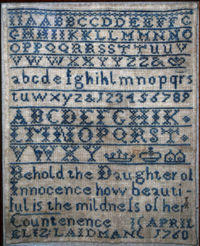 AAABBCCDDEEFFG
GHHIIKKLLMMNNO
OPPQQRRSSTTUUV
VWWXXYYZZ&
abcdefghiklmnopqrs
tuwxyz&123456789
ABCDEFGHIK
LMNOPQRST
VWXY
Behold the Daughter of
Innocence how beauti-
ful is the mildness of her
Countenence APRIL
ELIZ LAIDMAN 1760